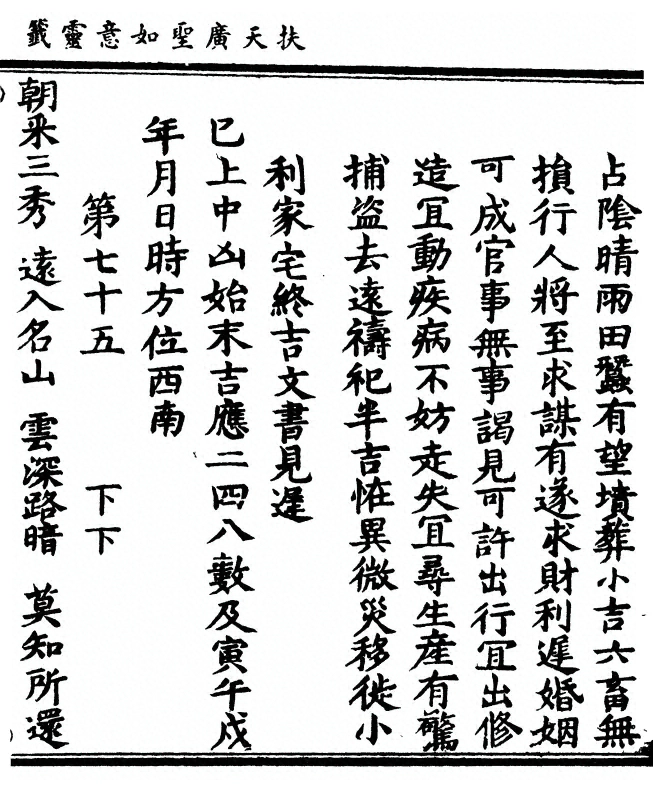 扶天廣聖如意靈籤
占陰晴雨田蠶有望墳葬小吉六畜無
損行人將至求謀有遂求財利遲婚姻
可成官事無事謁見可許出行冝出修
造冝動疾病不妨走失冝尋生產有驚
捕盜去遠禱祀半吉恠異微災移徙小
利家宅終吉文書見遲
已上中凶始末吉應二四八數及寅午戌
年月日時方位西南
第七十五 下下
朝釆三秀 遠入名山 雲深路暗 莫知所還